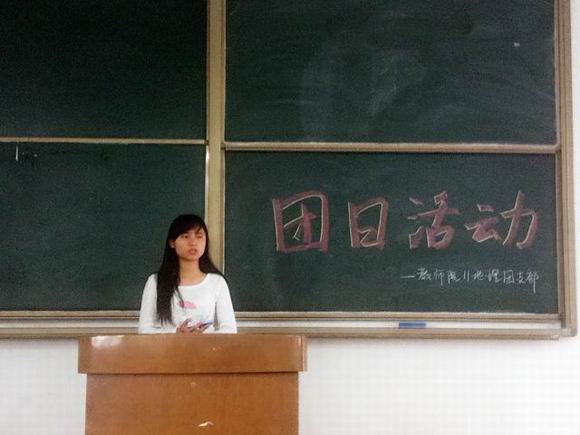 团日活动
—教师院11地理团支部